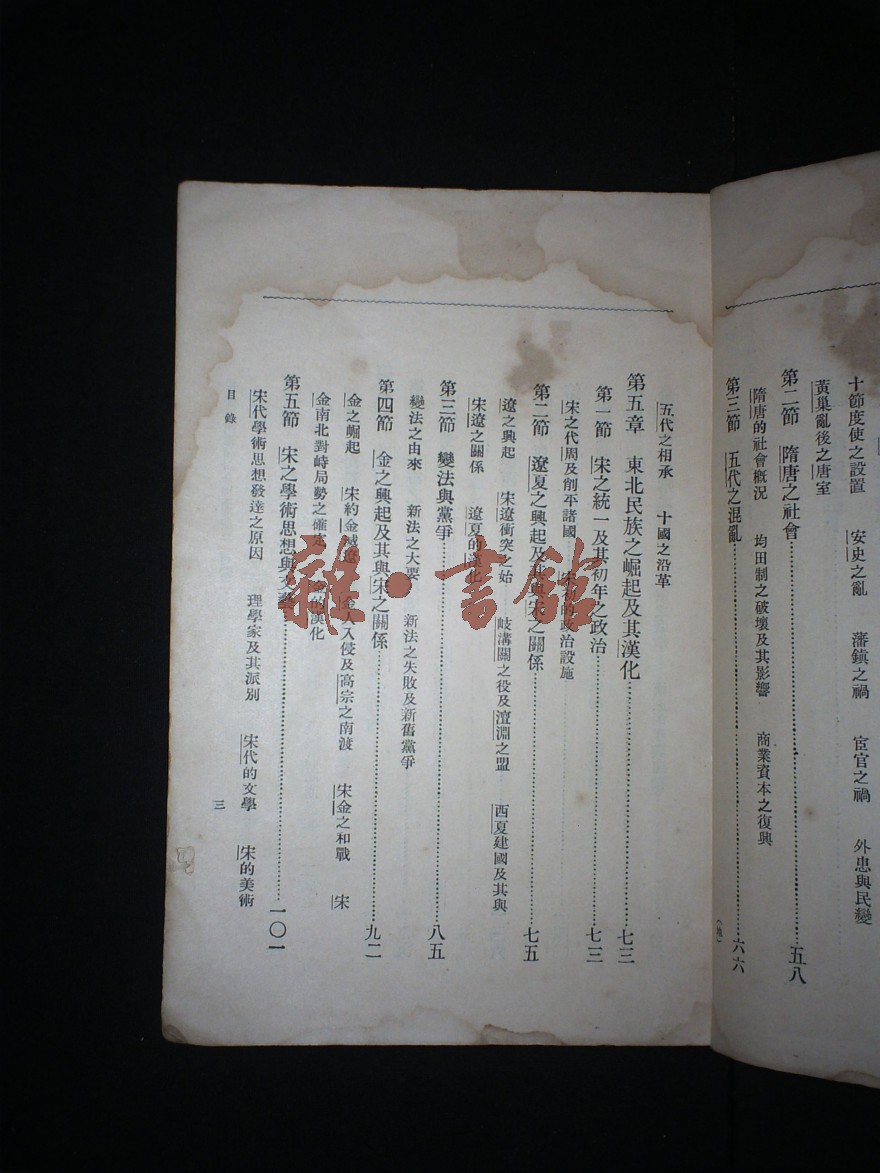 十節度使之設置　安史之亂　藩鎮之禍　宦官之禍　外患與民變
黃巢亂後之唐室
第二節　隋唐之社會……五八
隋唐的社會概況　均田制之破壞及其影響　商業資本之復興
第三節　五代之混亂……六六
五代之相承　十國之沿革
第五章　東北民族之崛起及其漢化……七三
第一節　宋之統一及其初年之政治……七三
宋之代周及削平諸國　宋初的政治設施
第二節　遼夏之興起及其與宋之關係……七五
遼之興起　宋遼衝突之始　岐溝關之役及澶淵之盟　西夏建國及其與
宋遼之關係　遼夏的漢化
第三節　變法與黨爭……八五
變法之由來　新法之大要　新法之失敗及新舊黨爭
第四節　金之興起及其與宋之關係……九二
金之崛起　宋約金滅遼　金人入侵及高宗之南渡　宋金之和戰　宋
金南北對峙局勢之確定　金的漢化
第五節　宋之學術思想與文藝……一〇一
宋代學術思想發達之原因　理學家及其派別　宋代的文學　宋的美術
目錄　三
雜·書館